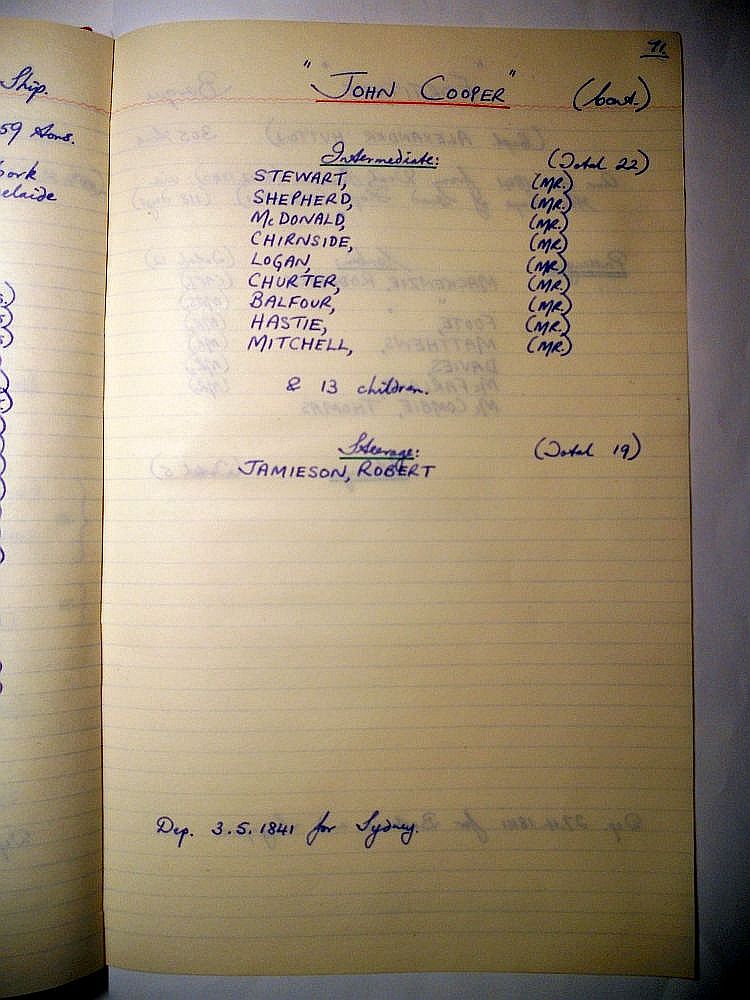 Ship.
59 tons.
Cork
elaide
71.
"JOHN COOPER" (Cont.)
Intermediate: (Total 22)
STEWART, (MR.)
SHEPHERD, (MR.)
McDONALD, (MR.)
CHIRNSIDE, (MR.)
LOGAN, (MR.)
CHURTER, (MR.)
BALFOUR, (MR.)
HASTIE, (MR.)
MITCHELL, (MR.)
& 13 children.
Steerage: (Total 19)
JAMIESON, ROBERT
Dep. 3.5.1841 for Sydney.